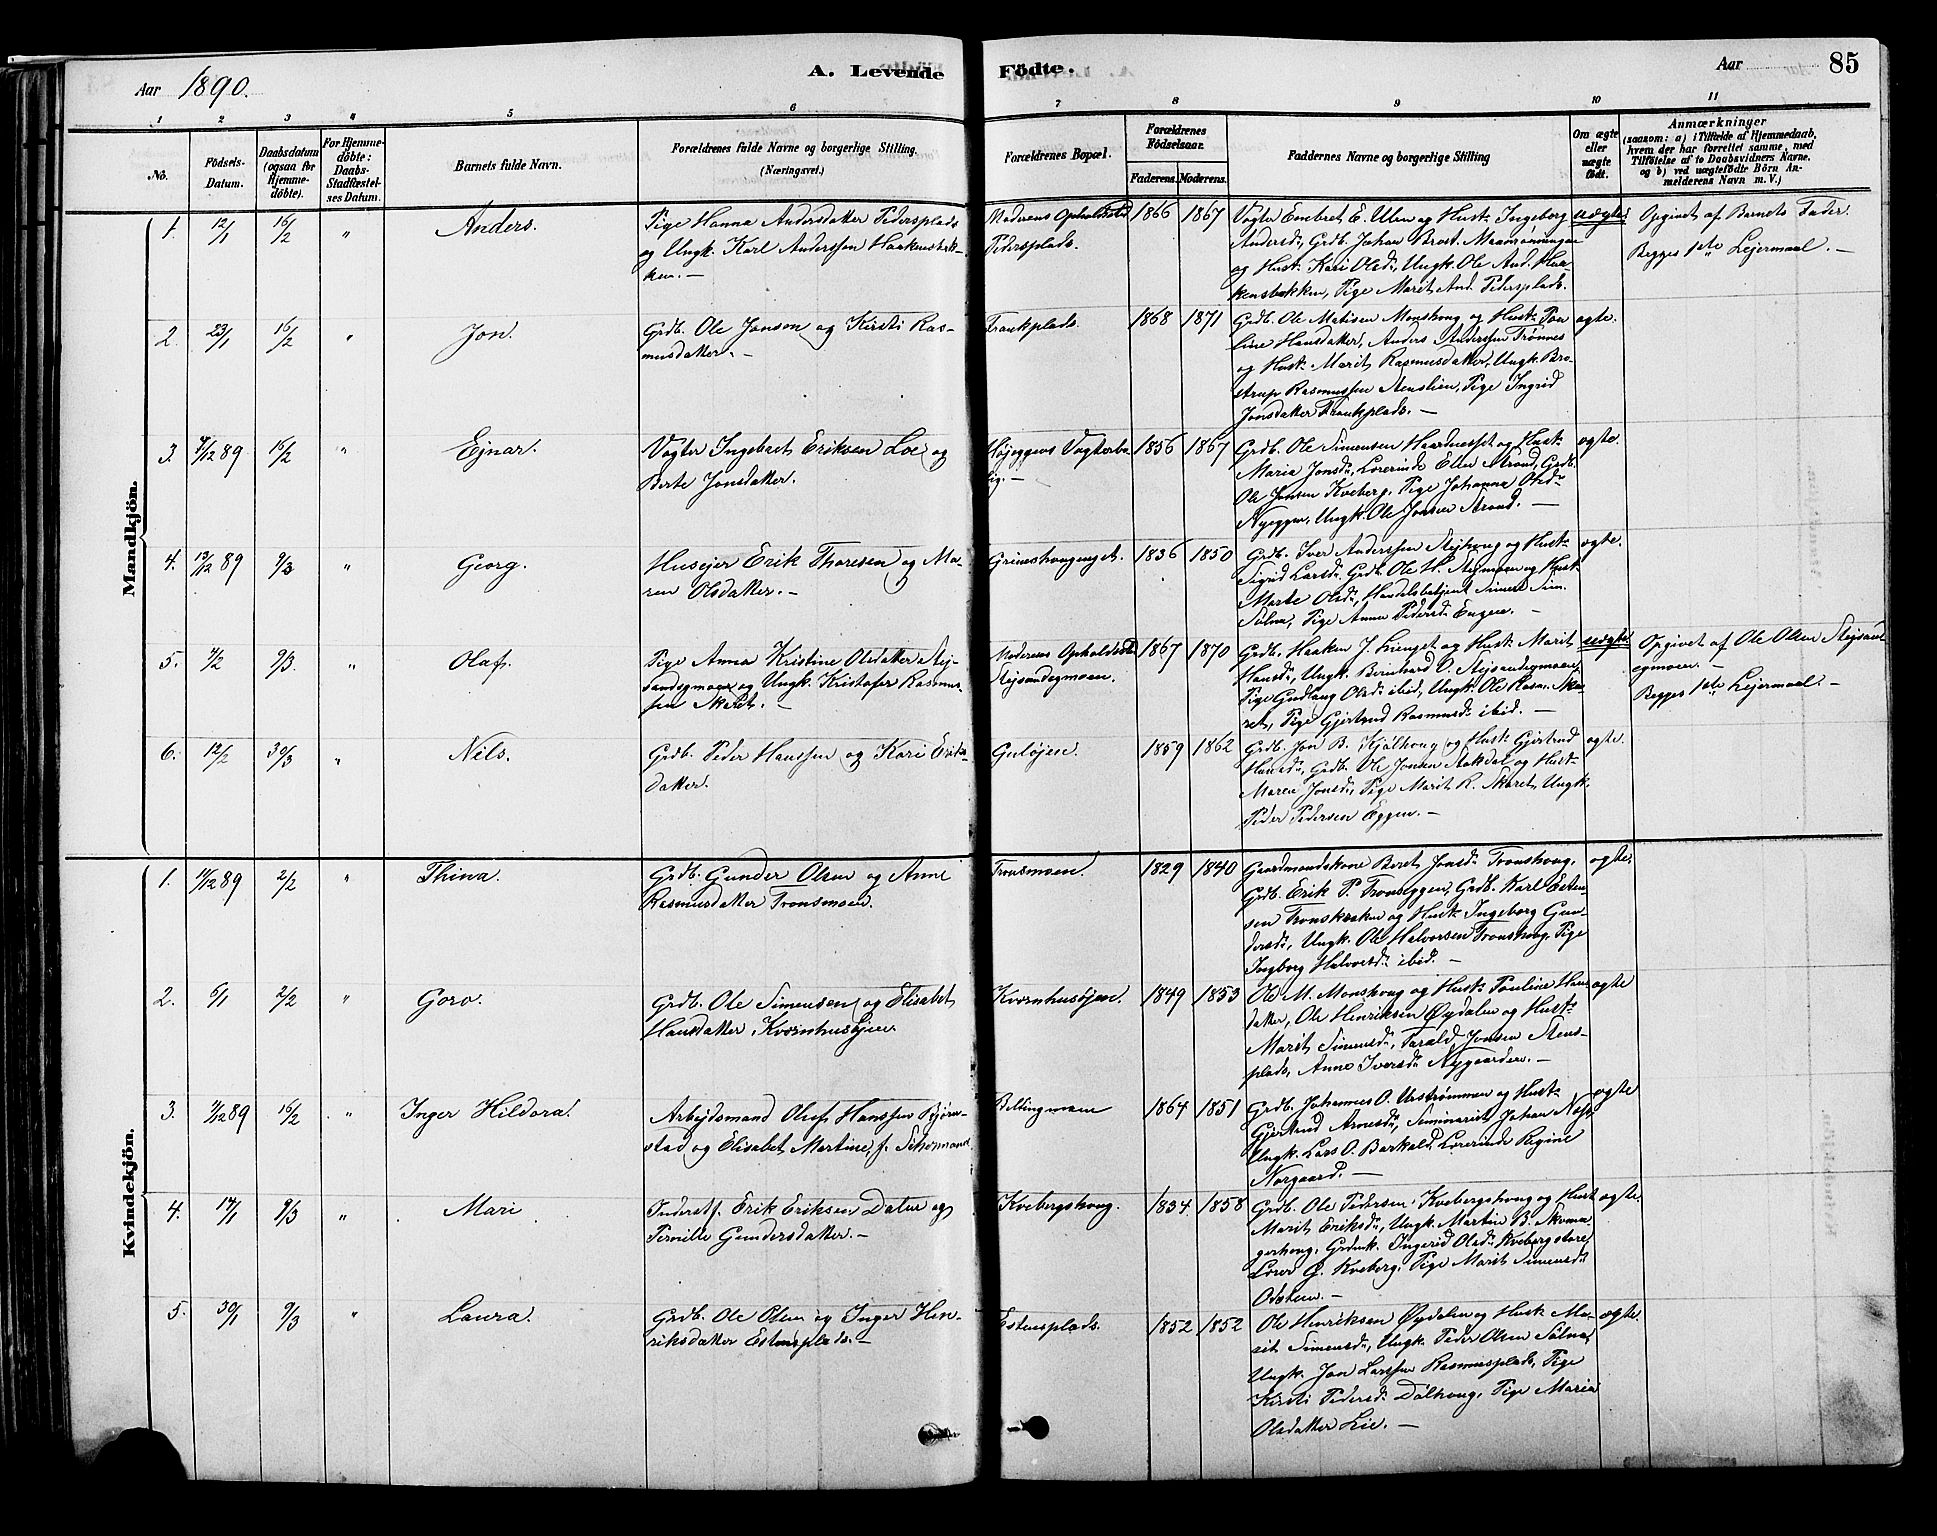 Aar 1890.
A. Levende
Födte.
Aar
85
1 2 3 4 5 6 7 8 9 10 11
No.
Födsels-
Datum.
Daabsdatum
(ogsaa for
Hjemme-
döbte).
For Hjemme-
döbte:
Daabs-
Stadfæstel-
ses Datum.
Barnets fulde Navn.
Forældrenes fulde Navne og borgerlige Stilling.
(Næringsvei.)
Forældrenes Bopæl.
Forældrenes
Födselsaar.
Faderens. Moderens.
Faddernes Navne og borgerlige Stilling
Om ægte
eller
uægte
födt.
Anmærkninger
(saasom: a) i Tilfælde af Hjemmedaab,
hvem der har forrettet samme, med
Tilföielse af to Daabsvidners Navne,
og b) ved uægtefödte Börn An-
melderens Navn m. V.)
Mandkjön.
1. 12/1 16/2 " Anders.
Pige Hanna Andersdatter Pedersplads
og Ungk. Karl Anderssen Haakensbak-
ken. —
Moderens Opholdsted
Pedersplads.
1866 1867
Vogter Embret E. Ulen og Hust. Ingeborg
Andersd., Grdb. Johan Brost. Maanrønningen
og Hust. Kari Olsd., Ungk. Ole And. Haa-
kensbakken, Pige Marit And. Pedersplads.
uægte.
Opgivet af Barnets Fader.
Begges 1ste Lejermaal. —
2. 23/1 16/2 " Jon.
Grdb. Ole Jonsen og Kirsti Ras-
musdatter. —
Trankplads.
1868 1871
Grdb. Ole Matisen Monshoug og Hust. Pau-
line Hansdatter, Anders Anderssen Trønnes
og Hust. Marit Rasmusdatter, Ungk. Bro-
strup Rasmussen Stenslien, Pige Ingrid
Jonsdatter Trankplads. —
ægte.
3. 7/12 89 16/2 " Ejnar.
Vogter Ingebret Eriksen Loe og
Berte Jonsdatter.
Højeggens Vogterbo-
lig. —
1856 1867
Grdb. Ole Simensen Haardnesset og Hust.
Maria Jonsd., Lærerinde Ellen Strand, Grdb.
Ole Jonsen Kveberg, Pige Johanna Olsd.
Nyeggen, Ungk. Ole Jonsen Strand. —
ægte.
4. 13/12 89 9/3 " Georg.
Husejer Erik Thoresen og Ma-
ren Olsdatter. —
Grimshaugenget.
1836 1850
Grdb. Iver Anderssen Stejhoug og Hust.
Sigrid Larsd., Grdb. Ole H. Stejmoen og Hust.
Marte Olsd., Handelsbetjent Simen Sim.
Sølna, Pige Anne Pedersd. Engen. —
ægte.
5. 7/2 9/3 " Olaf.
Pige Anna Kristine Olsdatter Stej-
sandegmoen og Ungk. Kristofer Rasmus-
sen Skaret. —
Moderens Opholdsted
Stejsandegmoen.
1867 1870
Grdb. Haaken J. Lienget og Hust. Marit
Hansd., Ungk. Bernhard O. Stejsandegmoen,
Pige Gudlaug Olsd. ibid, Ungk. Ole Rasm. Ska-
ret, Pige Gjertrud Rasmusd. ibid. —
uægte.
Opgivet af Ole Olsen Stejsand-
egmoen. —
Begges 1ste Lejermaal. —
6. 12/2 30/3 " Nils.
Grdb. Peder Hanssen og Kari Eriks-
datter.
Guløjen.
1859 1862
Grdb. Jon B. Kjølhoug og Hust. Gjertrud
Hansd., Grdb. Ole Jonsen Stokdal og Hust.
Maren Jonsd., Pige Marit R. Skaret, Ungk.
Peder Pedersen Eggen. —
ægte.
Kvindekjön.
1. 11/12 89 2/2 " Thina.
Grdb. Gunder Olsen og Anne
Rasmusdatter Tronsmoen.
Tronsmoen.
1829 1840
Gaardmandskone Beret Jonsd. Tronshoug,
Grdb. Erik P. Tronseggen, Grdb. Karl Esten-
sen Tronskroken og Hust. Ingeborg Gun-
dersd., Ungk. Ole Halvorsen Tronshoug, Pige
Ingborg Halvorsd. ibid. —
ægte.
2. 5/1 2/2 " Goro.
Grdb. Ole Simensen og Elisabet
Hansdatter, Kvørnhusøjen.
Kvørnhusøjen.
1849 1853
Ole M. Monshoug og Hust. Pauline Hans-
datter, Ole Henriksen Øydalen og Hust.
Marit Simensd., Tarald Jonsen Stens-
plads, Anne Iversd. Nygaarden. —
ægte
3. 11/12 89 16/2 " Inger Hildora.
Arbejdsmand Oluf Hanssen Bjørn-
stad og Elisabet Martine, f.
Bellingmoen
1864 1851
Grdb. Johannes O. Urstrømmen og Hust.
Gjertrud Arnesd., Seminarist Johan Næss,
Ungk. Lars O. Barkald, Lærerinde Regine
Norgaard. —
ægte
4. 14/1 9/3 " Mari
Inderst f. Erik Eriksen Dalen og
Pernille Gundersdatter. —
Kvebergshoug.
1834 1858
Grdb. Ole Pedersen Kvebergshoug og Hust.
Marit Eriksd., Ungk. Martin B. Skoma-
gerhoug, Grdenk. Ingerid Olsd. Kveberg store,
Lærer O. Kveberg, Pige Marit Simensd.
ægte.
5. 30/1 9/3 " Laura.
Grdb. Ole Olsen og Inger Hen-
riksdatter Estensplads. —
Estensplads.
1852 1852
Ole Henriksen Øydalen og Hust. Ma-
rit Simensd., Ungk. Peder Olsen Sølna,
Ungk. Jon Larssen Rasmusplads, Pige
Kirsti Pedersd. Dølhoug, Pige Maria
Olsdatter Lie. —
ægte.